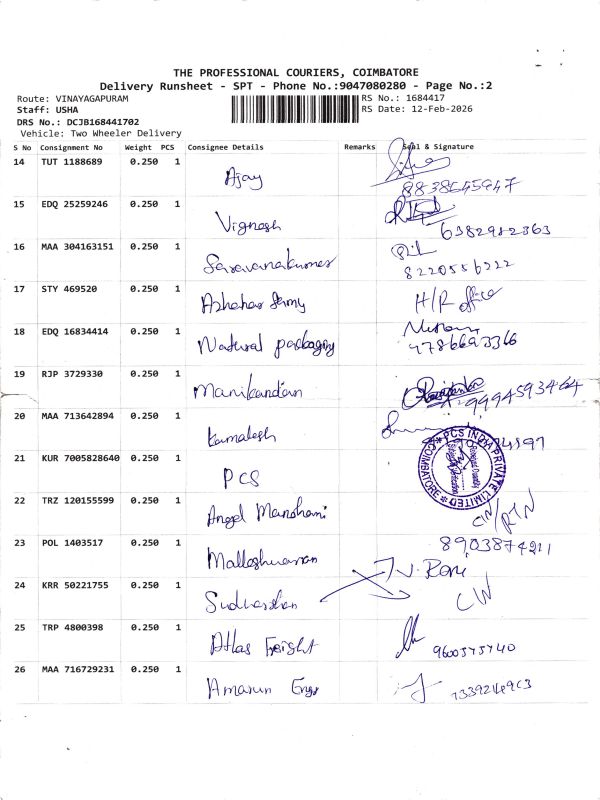 THE PROFESSIONAL COURIERS, COIMBATORE
Delivery Runsheet - SPT - Phone No.:9047080280 - Page No.:2
Route: VINAYAGAPURAM RS No.: 1684417
Staff: USHA RS Date: 12-Feb-2026
DRS No.: DCJB168441702
Vehicle: Two Wheeler Delivery
S No Consignment No Weight PCS Consignee Details Remarks Seal & Signature
14 TUT 1188689 0.250 1 Ajay
15 EDQ 25259246 0.250 1 Vignesh
16 MAA 304163151 0.250 1 Saravanakumar
8220556222
17 STY 469520 0.250 1 H/R office
18 EDQ 16834414 0.250 1 Natural packaging
19 RJP 3729330 0.250 1 Manikandan 9994593464
20 MAA 713642894 0.250 1 Kamalesh
21 KUR 7005828640 0.250 1 PCS
PCS INDIA PRIVATE LIMITED
COIMBATORE
22 TRZ 120155599 0.250 1 Angel
23 POL 1403517 0.250 1 8903874211
24 KRR 50221755 0.250 1 Sudharshan
25 TRP 4800398 0.250 1 Atlas Freight
26 MAA 716729231 0.250 1